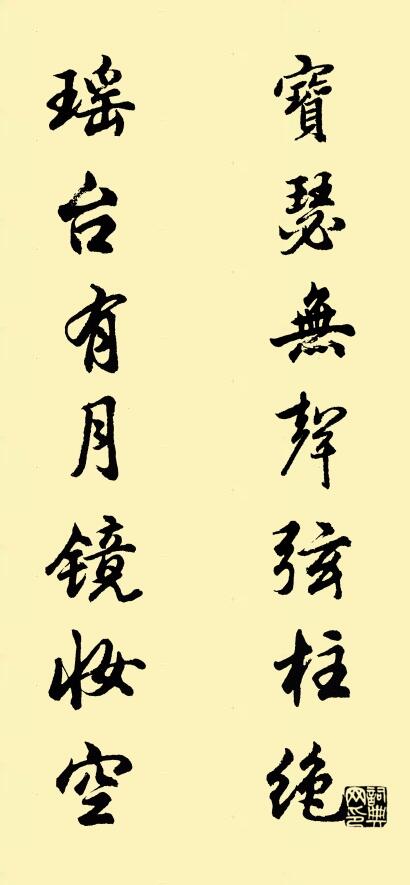 寶瑟無聲弦柱絶
瑶台有月镜妆空
詞典网印